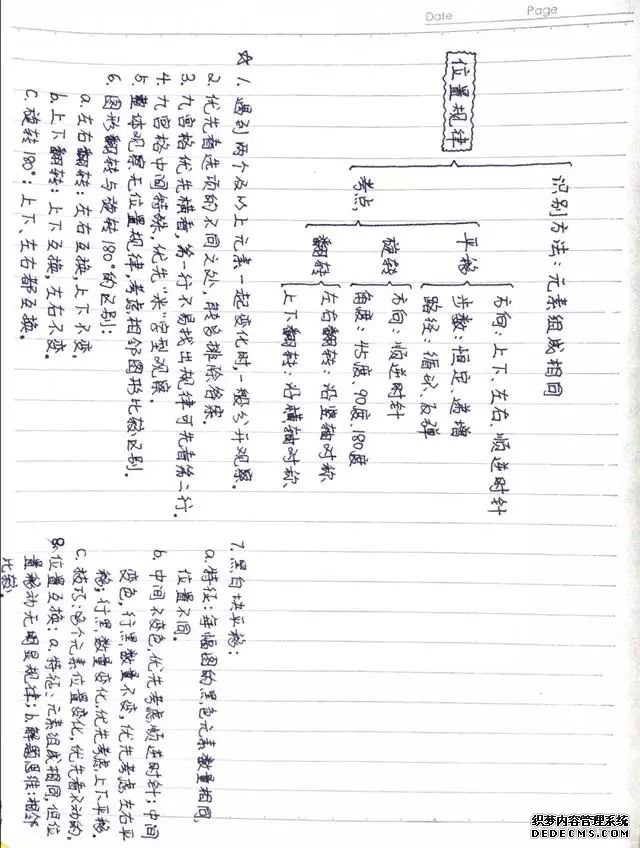 Date
Page
位置规律
识别方法：元素组成相同
考点
平移
方向：上下、左右、顺逆时针
步数：恒定、递增
路径：循环、反弹
旋转
方向：顺逆时针
角度：45度、90度、180度
翻转
左右翻转：沿竖轴对称
上下翻转：沿横轴对称
☆ 1. 遇到两个及以上元素一起变化时，一般分开观察。
2. 优先看选项的不同之处，能否排除答案。
3. 九宫格优先横看，第一行不易找出规律可先看第二行。
4. 九宫格中间特殊，优先“米”字型观察。
5. 整体观察无位置规律，考虑相邻图形比较区别。
6. 图形翻转与旋转180°的区别：
a. 左右翻转：左右互换，上下不变。
b. 上下翻转：上下互换，左右不变。
c. 旋转180°：上下、左右都互换。
7. 黑白块平移：
a. 特征：每幅图的黑色元素数量相同，
位置不同。
b. 中间不变色，优先考虑顺逆时针；中间
变色，行黑数量不变，优先考虑左右平
移；行黑数量变化，优先考虑上下平移。
c. 技巧：多个元素位置变化，优先看不动的。
8. 位置互换：a. 特征：元素组成相同，但位
置移动无明显规律；b. 解题思维：相邻
比较。
织梦内容管理系统
DEDECMS.COM